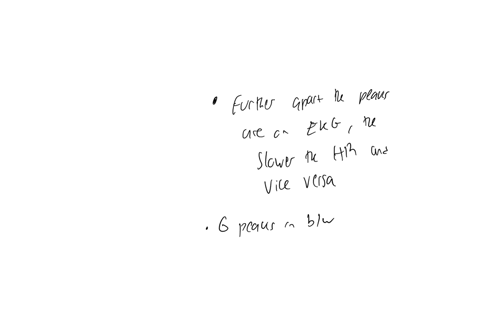 • Further apart the peaks
are on EKG, the
slower the HR and
vice versa
• 6 peaks in b/w